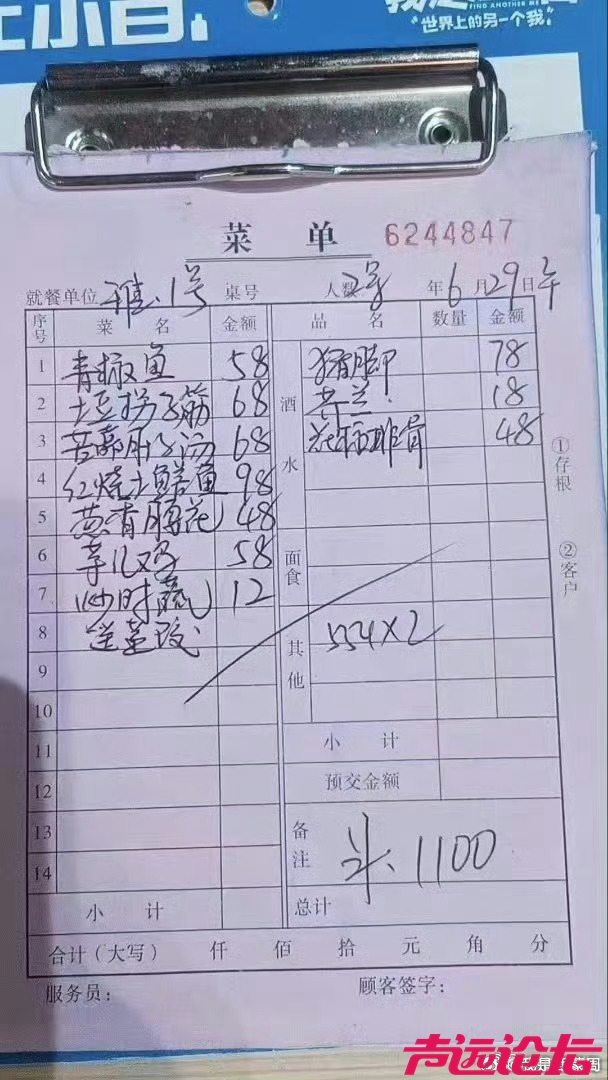 世界上的另一个我
FIND ANOTHER ME
菜 单 6244847
就餐单位 雅.1号 桌号 人数 年6月29日午
序号 菜 名 金额 品 名 数量 金额
1 青椒鱼 58 酒水 猪脚 78
2 土豆拐子筋 68 18
3 汤 68 排骨 48
4 红烧土鳝鱼 98
5 葱香腰花 48
6 芋儿鸡 58 面食
7 炒时蔬 12
8 其他 554×2
9
10
11 小 计
12 预交金额
13 备注 1100
14
小 计 总计
合计（大写） 仟 佰 拾 元 角 分
服务员： 顾客签字：
①存根
②客户
声远论坛